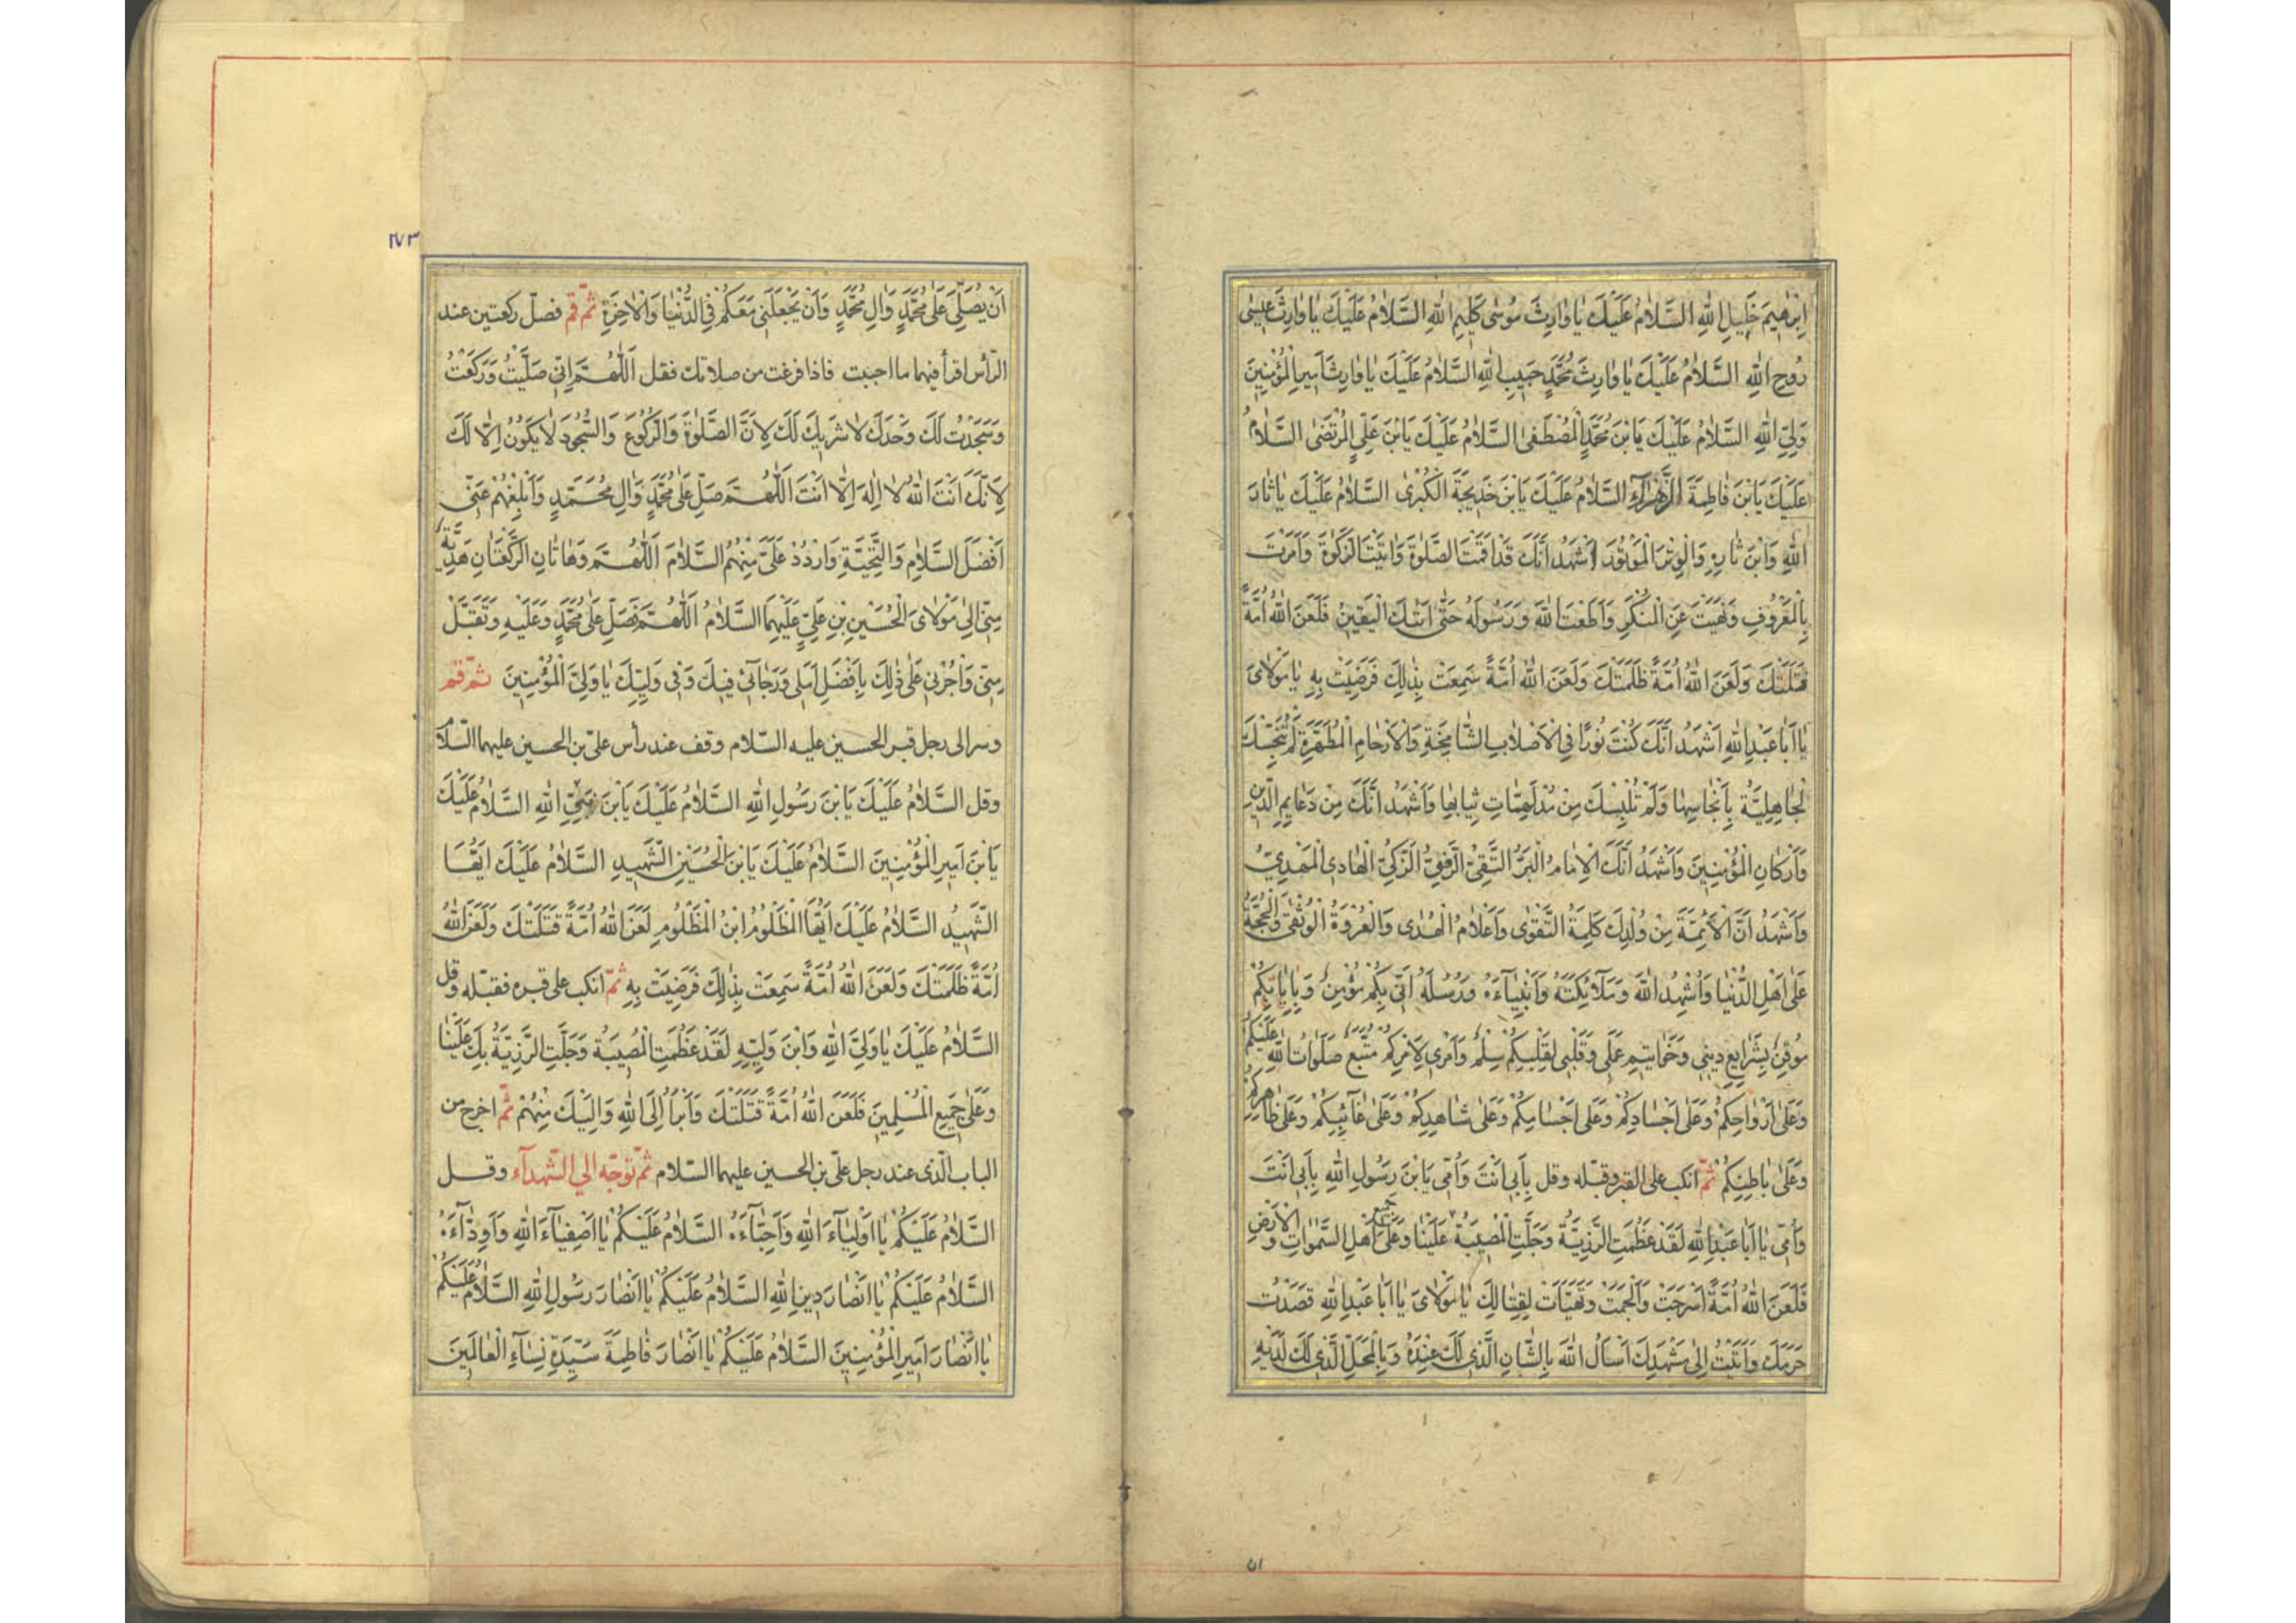 اِبْرٰهِيمَ خَلِيلِ اللّٰهِ السَّلٰامُ عَلَيْكَ يٰا وٰارِثَ مُوسٰى كَلِيمِ اللّٰهِ السَّلٰامُ عَلَيْكَ يٰا وٰارِثَ عِيسٰى
رُوحِ اللّٰهِ السَّلٰامُ عَلَيْكَ يٰا وٰارِثَ مُحَمَّدٍ حَبِيبِ اللّٰهِ السَّلٰامُ عَلَيْكَ يٰا وٰارِثَ اَمِيرِ الْمُؤْمِنِينَ
وَلِيِّ اللّٰهِ السَّلٰامُ عَلَيْكَ يَابْنَ مُحَمَّدٍ الْمُصْطَفىٰ السَّلٰامُ عَلَيْكَ يَابْنَ عَلِيٍّ الْمُرْتَضىٰ السَّلٰامُ
عَلَيْكَ يَابْنَ فٰاطِمَةَ الزَّهْرٰاءِ السَّلٰامُ عَلَيْكَ يَابْنَ خَدِيجَةَ الْكُبْرىٰ السَّلٰامُ عَلَيْكَ يٰا ثٰارَ
اللّٰهِ وَابْنَ ثٰارِهِ وَالْوِتْرَ الْمَوْتُورَ اَشْهَدُ اَنَّكَ قَدْ اَقَمْتَ الصَّلٰوةَ وَاٰتَيْتَ الزَّكٰوةَ وَاَمَرْتَ
بِالْمَعْرُوفِ وَنَهَيْتَ عَنِ الْمُنْكَرِ وَاَطَعْتَ اللّٰهَ وَرَسُولَهُ حَتّٰى اَتٰيكَ الْيَقِينُ فَلَعَنَ اللّٰهُ اُمَّةً
قَتَلَتْكَ وَلَعَنَ اللّٰهُ اُمَّةً ظَلَمَتْكَ وَلَعَنَ اللّٰهُ اُمَّةً سَمِعَتْ بِذٰلِكَ فَرَضِيَتْ بِهِ يٰا مَوْلٰاىَ
يٰا اَبٰا عَبْدِ اللّٰهِ اَشْهَدُ اَنَّكَ كُنْتَ نُورًا فِى الْاَصْلٰابِ الشّٰامِخَةِ وَالْاَرْحٰامِ الْمُطَهَّرَةِ لَمْ تُنَجِّسْكَ
الْجٰاهِلِيَّةُ بِاَنْجٰاسِهٰا وَلَمْ تُلْبِسْكَ مِنْ مُدْلَهِمّٰاتِ ثِيٰابِهٰا وَاَشْهَدُ اَنَّكَ مِنْ دَعٰايِمِ الدِّينِ
وَاَرْكٰانِ الْمُؤْمِنِينَ وَاَشْهَدُ اَنَّكَ الْاِمٰامُ الْبَرُّ التَّقِىُّ الرَّضِىُّ الزَّكِىُّ الْهٰادِى الْمَهْدِىُّ
وَاَشْهَدُ اَنَّ الْاَئِمَّةَ مِنْ وُلْدِكَ كَلِمَةُ التَّقْوٰى وَاَعْلٰامُ الْهُدٰى وَالْعُرْوَةُ الْوُثْقٰى وَالْحُجَّةُ
عَلٰى اَهْلِ الدُّنْيٰا وَاُشْهِدُ اللّٰهَ وَمَلٰٓائِكَتَهُ وَاَنْبِيٰآءَهُ وَرُسُلَهُ اَنّى بِكُمْ مُؤْمِنٌ وَبِاِيٰابِكُمْ
مُوقِنٌ بِشَرٰايِعِ دِينِى وَخَوٰاتِيمِ عَمَلِى وَقَلْبِى لِقَلْبِكُمْ سِلْمٌ وَاَمْرِى لِاَمْرِكُمْ مُتَّبِعٌ صَلَوٰاتُ اللّٰهِ عَلَيْكُمْ
وَعَلٰى اَرْوٰاحِكُمْ وَعَلٰى اَجْسٰادِكُمْ وَعَلٰى اَجْسٰامِكُمْ وَعَلٰى شٰاهِدِكُمْ وَعَلٰى غٰآئِبِكُمْ وَعَلٰى ظٰاهِرِكُمْ
وَعَلٰى بٰاطِنِكُمْ ثمّ انكب على القبر وقبّله وقل بِاَبِى اَنْتَ وَاُمّى يَابْنَ رَسُولِ اللّٰهِ بِاَبِى اَنْتَ
وَاُمّى يٰا اَبٰا عَبْدِ اللّٰهِ لَقَدْ عَظُمَتِ الرَّزِيَّةُ وَجَلَّتِ الْمُصِيبَةُ عَلَيْنٰا وَعَلٰى جَمِيعِ اَهْلِ السَّمٰوٰاتِ وَالْاَرْضِ
فَلَعَنَ اللّٰهُ اُمَّةً اَسْرَجَتْ وَاَلْجَمَتْ وَتَهَيَّاَتْ لِقِتٰالِكَ يٰا مَوْلٰاىَ يٰا اَبٰا عَبْدِ اللّٰهِ قَصَدْتُ
حَرَمَكَ وَاَتَيْتُ اِلٰى مَشْهَدِكَ اَسْاَلُ اللّٰهَ بِالشَّانِ الَّذِى لَكَ عِنْدَهُ وَبِالْمَحَلِّ الَّذِى لَكَ لَدَيْهِ
٥١
١٧٣
اَنْ يُصَلِّىَ عَلٰى مُحَمَّدٍ وَاٰلِ مُحَمَّدٍ وَاَنْ يَجْعَلَنِى مَعَكُمْ فِى الدُّنْيٰا وَالْاٰخِرَةِ ثمّ قم فصلّ ركعتين عند
الرّأس اقرأ فيهما ما احببت فاذا فرغت من صلاتك فقل اَللّٰهُمَّ اِنّى صَلَّيْتُ وَرَكَعْتُ
وَسَجَدْتُ لَكَ وَحْدَكَ لٰا شَرِيكَ لَكَ لِاَنَّ الصَّلٰوةَ وَالرُّكُوعَ وَالسُّجُودَ لٰا يَكُونُ اِلّٰا لَكَ
لِاَنَّكَ اَنْتَ اللّٰهُ لٰا اِلٰهَ اِلّٰا اَنْتَ اَللّٰهُمَّ صَلِّ عَلٰى مُحَمَّدٍ وَاٰلِ مُحَمَّدٍ وَاَبْلِغْهُمْ عَنّى
اَفْضَلَ السَّلٰامِ وَالتَّحِيَّةِ وَارْدُدْ عَلَىَّ مِنْهُمُ السَّلٰامَ اَللّٰهُمَّ وَهٰاتٰانِ الرَّكْعَتٰانِ هَدِيَّةٌ
مِنّى اِلٰى مَوْلٰاىَ الْحُسَيْنِ بْنِ عَلِىٍّ عَلَيْهِمَا السَّلٰامُ اَللّٰهُمَّ فَصَلِّ عَلٰى مُحَمَّدٍ وَعَلَيْهِ وَتَقَبَّلْ
مِنّى وَاْجُرْنِى عَلٰى ذٰلِكَ بِاَفْضَلِ اَمَلِى وَرَجٰآئِى فِيكَ وَفِى وَلِيِّكَ يٰا وَلِىَّ الْمُؤْمِنِينَ ثمّ قم
وسر الى رجل قبر الحسين عليه السّلام وقف عند رأس علىّ بن الحسين عليهما السّلام
وقل السَّلٰامُ عَلَيْكَ يَابْنَ رَسُولِ اللّٰهِ السَّلٰامُ عَلَيْكَ يَابْنَ نَبِىِّ اللّٰهِ السَّلٰامُ عَلَيْكَ
يَابْنَ اَمِيرِ الْمُؤْمِنِينَ السَّلٰامُ عَلَيْكَ يَابْنَ الْحُسَيْنِ الشَّهِيدِ السَّلٰامُ عَلَيْكَ اَيُّهَا
الشَّهِيدُ السَّلٰامُ عَلَيْكَ اَيُّهَا الْمَظْلُومُ ابْنُ الْمَظْلُومِ لَعَنَ اللّٰهُ اُمَّةً قَتَلَتْكَ وَلَعَنَ اللّٰهُ
اُمَّةً ظَلَمَتْكَ وَلَعَنَ اللّٰهُ اُمَّةً سَمِعَتْ بِذٰلِكَ فَرَضِيَتْ بِهِ ثمّ انكب على قبره فقبّله وقل
السَّلٰامُ عَلَيْكَ يٰا وَلِىَّ اللّٰهِ وَابْنَ وَلِيِّهِ لَقَدْ عَظُمَتِ الْمُصِيبَةُ وَجَلَّتِ الرَّزِيَّةُ بِكَ عَلَيْنٰا
وَعَلٰى جَمِيعِ الْمُسْلِمِينَ فَلَعَنَ اللّٰهُ اُمَّةً قَتَلَتْكَ وَاَبْرَاُ اِلَى اللّٰهِ وَاِلَيْكَ مِنْهُمْ ثمّ اخرج من
الباب الّذى عند رجل علىّ بن الحسين عليهما السّلام ثمّ توجّه الى الشّهدآء وقل
السَّلٰامُ عَلَيْكُمْ يٰا اَوْلِيٰآءَ اللّٰهِ وَاَحِبّٰآءَهُ السَّلٰامُ عَلَيْكُمْ يٰا اَصْفِيٰآءَ اللّٰهِ وَاَوِدّٰآءَهُ
السَّلٰامُ عَلَيْكُمْ يٰا اَنْصٰارَ دِينِ اللّٰهِ السَّلٰامُ عَلَيْكُمْ يٰا اَنْصٰارَ رَسُولِ اللّٰهِ السَّلٰامُ عَلَيْكُمْ
يٰا اَنْصٰارَ اَمِيرِ الْمُؤْمِنِينَ السَّلٰامُ عَلَيْكُمْ يٰا اَنْصٰارَ فٰاطِمَةَ سَيِّدَةِ نِسٰآءِ الْعٰالَمِينَ